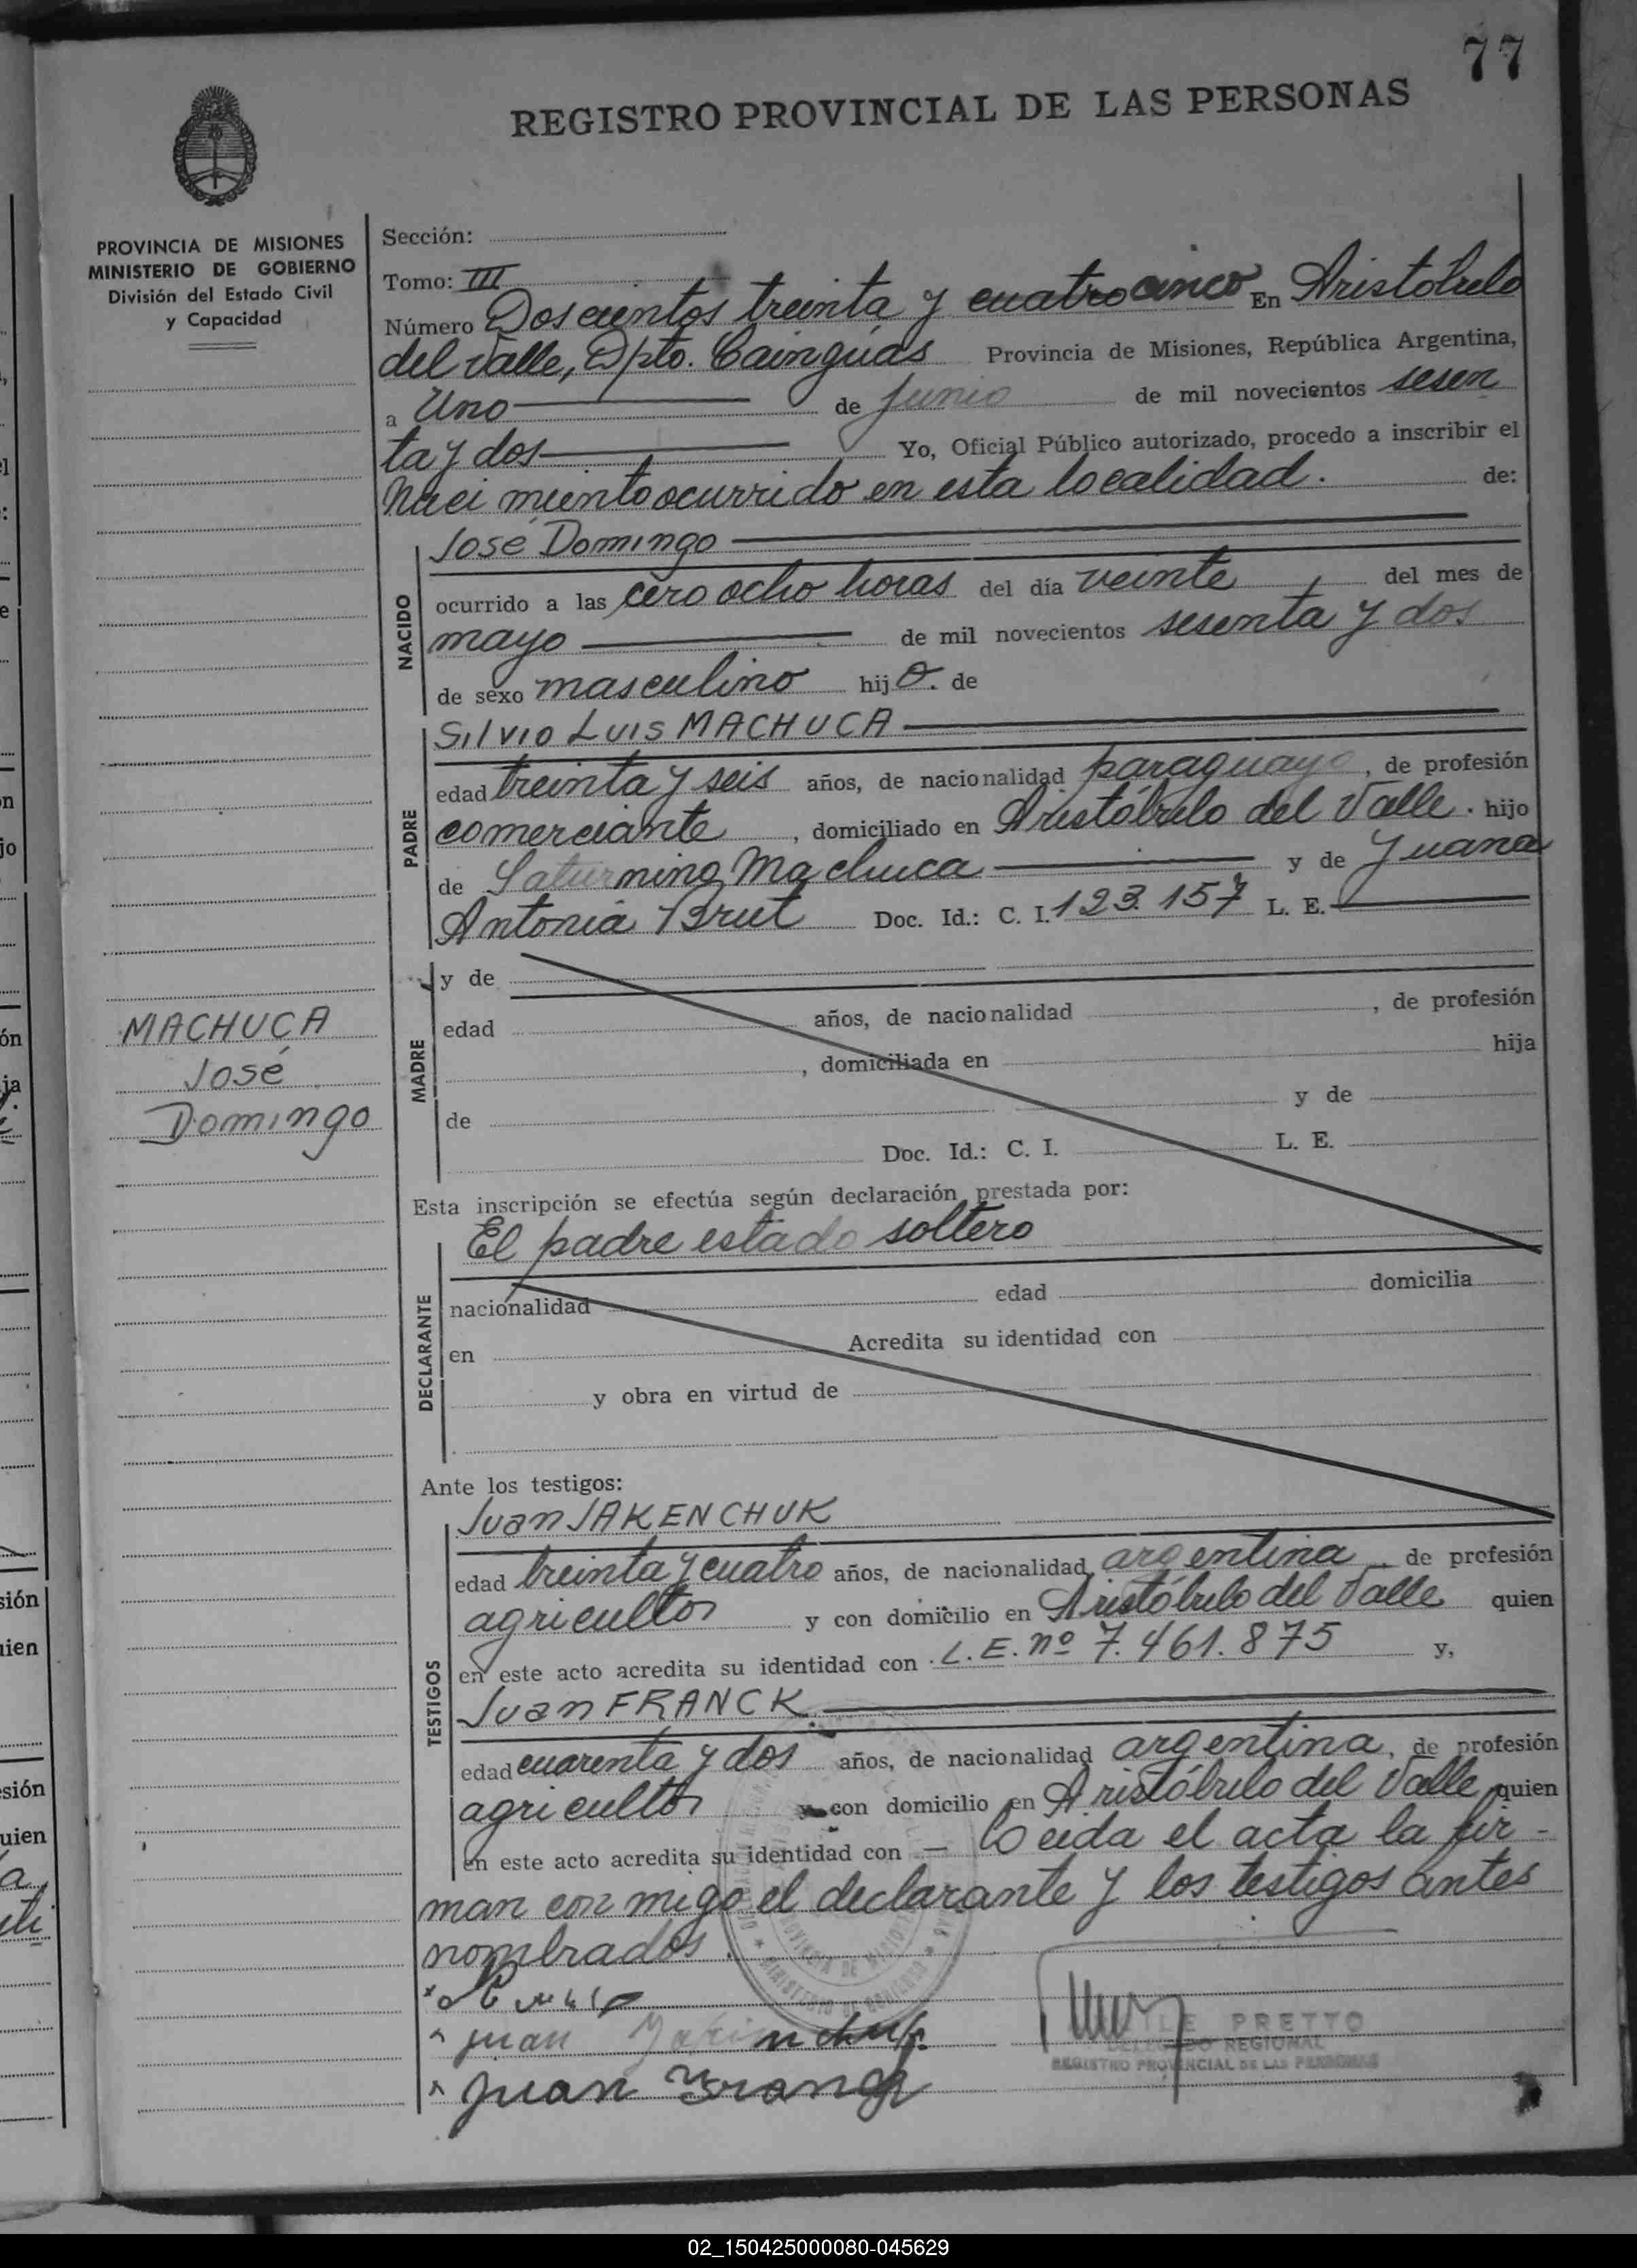 77
REGISTRO PROVINCIAL DE LAS PERSONAS
PROVINCIA DE MISIONES
MINISTERIO DE GOBIERNO
División del Estado Civil
y Capacidad
Sección:
Tomo: III
Número Doscientos treinta y cuatro cinco En Aristóbulo
del Valle, Dpto. Cainguás Provincia de Misiones, República Argentina,
a Uno de junio de mil novecientos sesen
ta y dos Yo, Oficial Público autorizado, procedo a inscribir el
Naci miento ocurrido en esta localidad. de:
NACIDO
José Domingo
ocurrido a las cero ocho horas del día veinte del mes de
mayo de mil novecientos sesenta y dos
de sexo masculino hijo. de
PADRE
Silvio Luis MACHUCA
edad treinta y seis años, de nacionalidad paraguayo, de profesión
comerciante, domiciliado en Aristóbulo del Valle. hijo
de Saturnino Machuca y de Juana
Antonia Brut Doc. Id.: C. I. 123.157 L. E.
MADRE
y de
edad años, de nacionalidad , de profesión
, domiciliada en hija
de y de
Doc. Id.: C. I. L. E.
MACHUCA
José
Domingo
Esta inscripción se efectúa según declaración prestada por:
DECLARANTE
El padre estado soltero
nacionalidad edad domicilia
en Acredita su identidad con
y obra en virtud de
Ante los testigos:
TESTIGOS
Juan JAKENCHUK
edad treinta y cuatro años, de nacionalidad argentina, de profesión
agricultor y con domicilio en Aristóbulo del Valle quien
en este acto acredita su identidad con L.E. nº 7.461.875 y,
Juan FRANCK
edad cuarenta y dos años, de nacionalidad argentina, de profesión
agricultor y con domicilio en Aristóbulo del Valle quien
en este acto acredita su identidad con — Leida el acta la fir-
man conmigo el declarante y los testigos antes
nombrados.
juan
juan Franck
PRETTO
DELEGADO REGIONAL
REGISTRO PROVINCIAL DE LAS PERSONAS
02_150425000080-045629